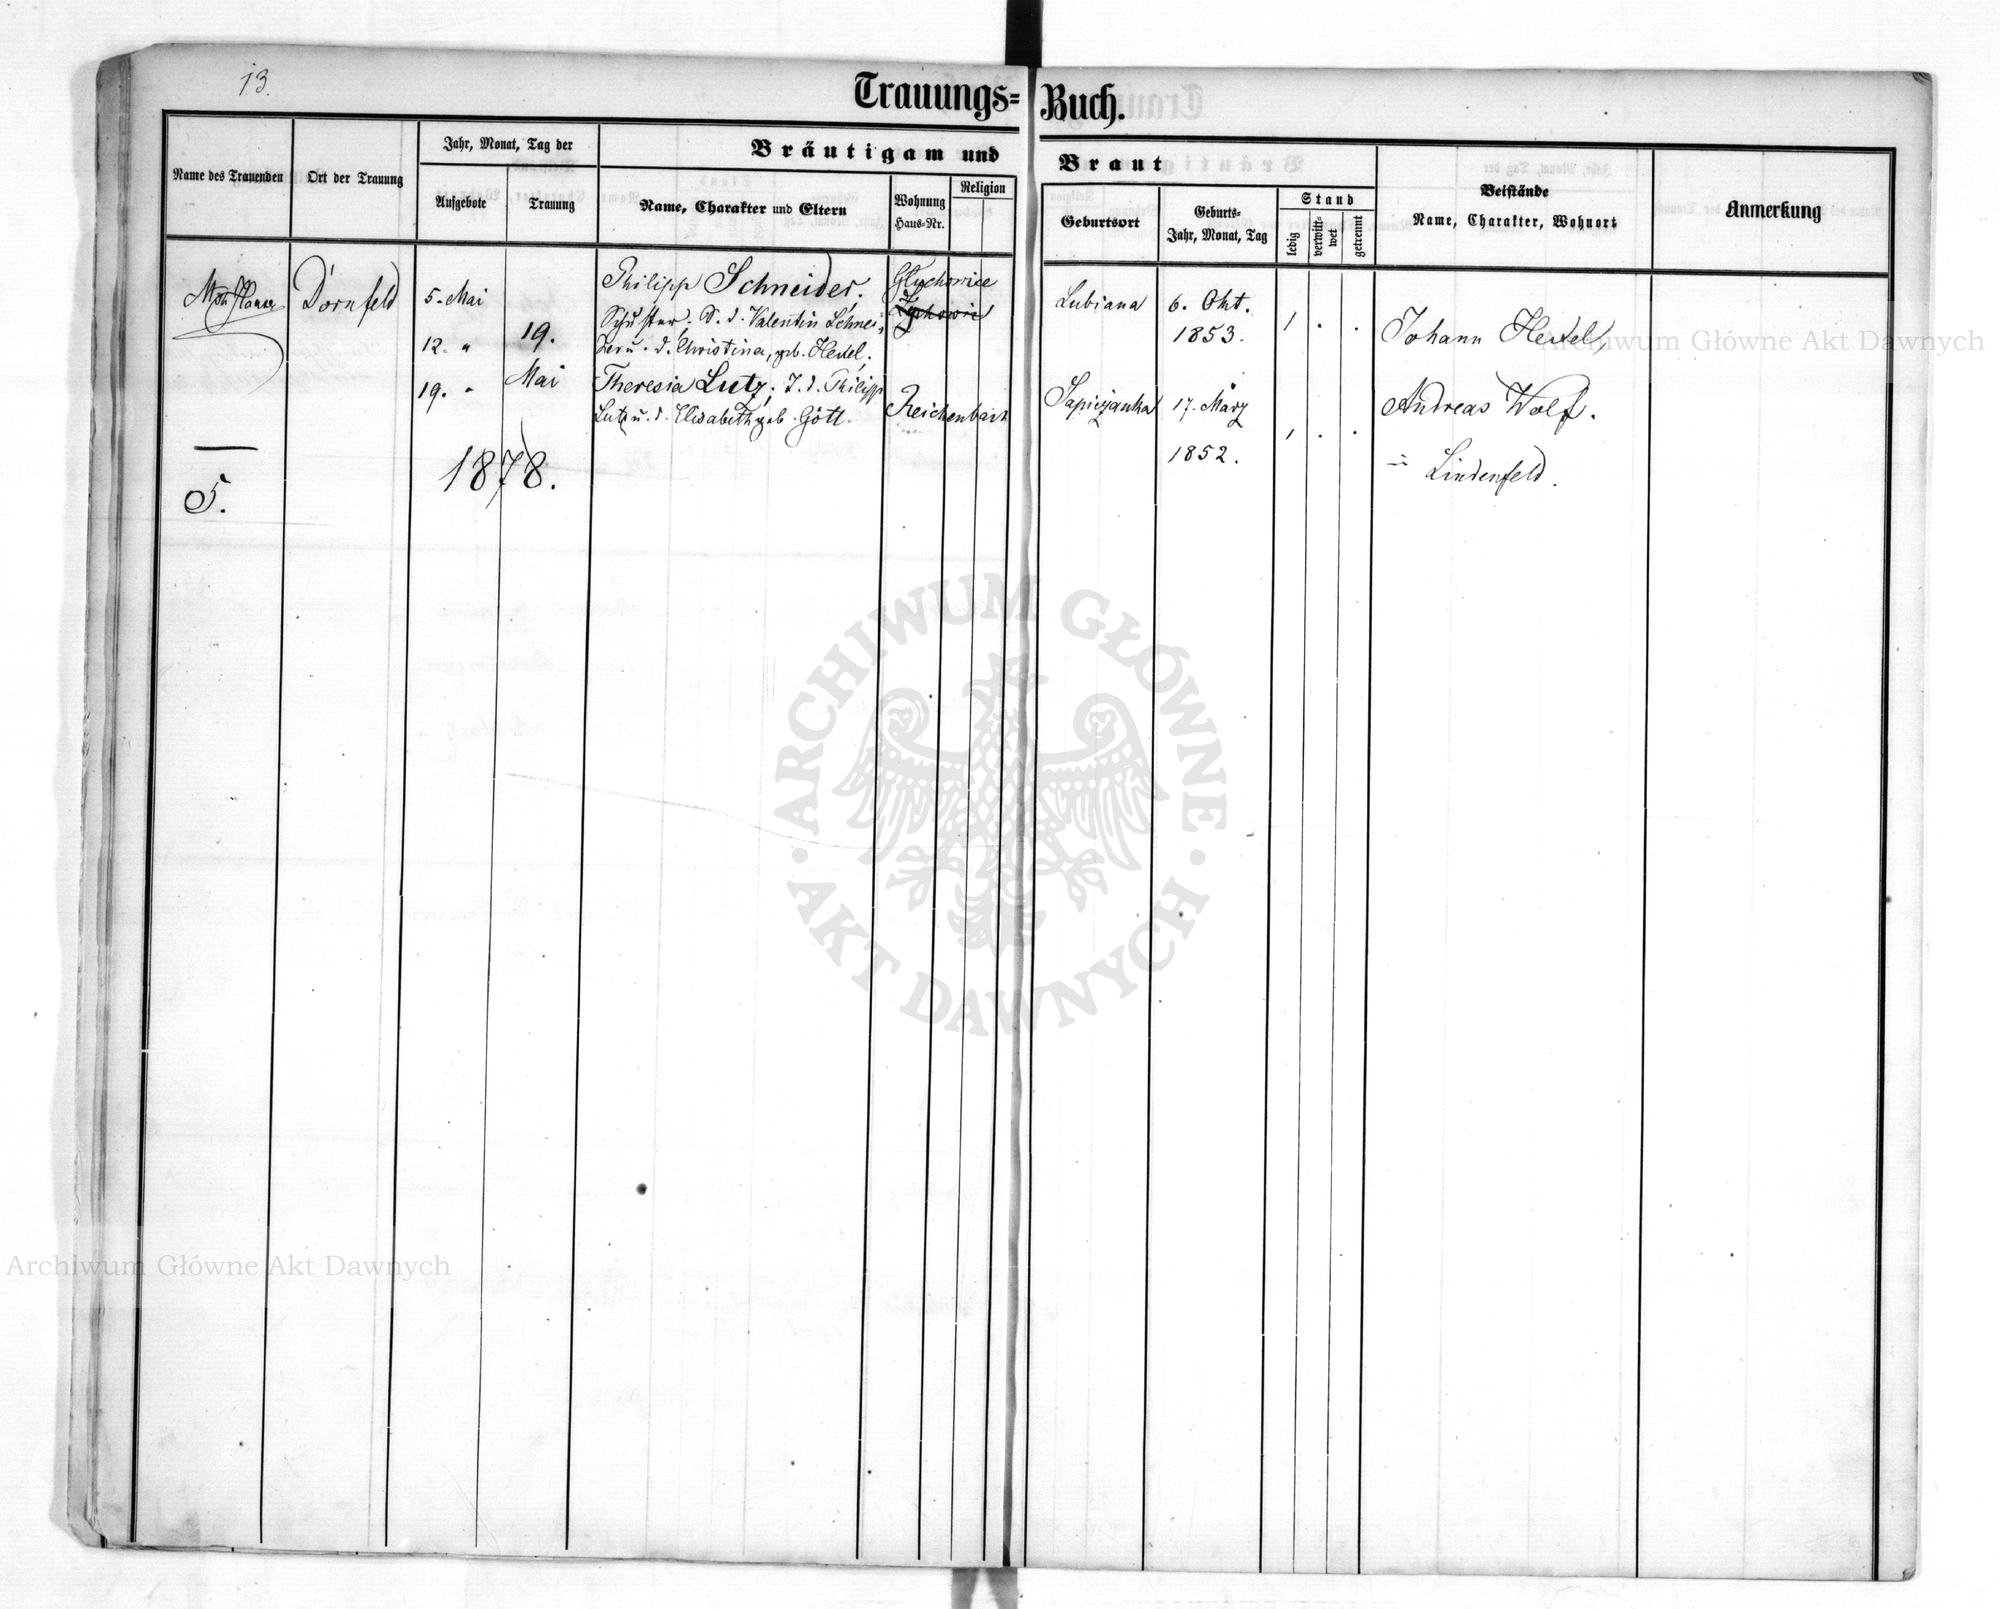 13.
Trauungs= Buch.
Name des Trauenden
Ort der Trauung
Jahr, Monat, Tag der
Aufgebote
Trauung
Bräutigam und Braut
Name, Charakter und Eltern
Wohnung
Haus=Nr.
Religion
Geburtsort
Geburts=
Jahr, Monat, Tag
Stand
ledig
verwitt=
wet
getrennt
Beistände
Name, Charakter, Wohnort
Anmerkung
Dornfeld
5. Mai
12. "
19. "
19.
Mai
1878.
Philipp Schneider,
Schuster. S. d. Valentin Schnei=
der u. d. Christina, geb. Hexel.
Gluchowice
Lubiana
6. Okt.
1853.
1 . .
Johann Hexel,
Theresia Lutz, T. d. Philipp
Lutz u. d. Elisabeth geb. Gött.
Reichenbach
Sapiezanka
17. März
1852.
1 . .
Andreas Wolf.
Lindenfeld.
5.
ARCHIWUM GŁÓWNE · AKT DAWNYCH ·
Archiwum Główne Akt Dawnych
Archiwum Główne Akt Dawnych